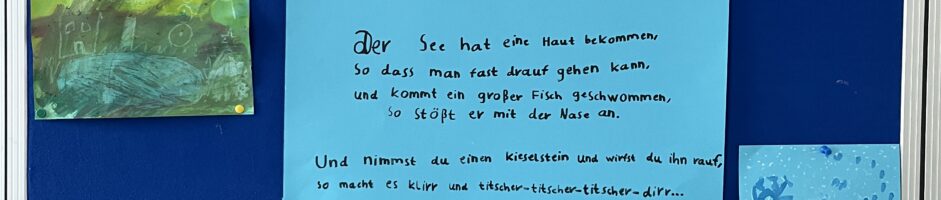 Der See hat eine Haut bekommen,
so dass man fast drauf gehen kann,
und kommt ein großer Fisch geschwommen,
so stößt er mit der Nase an.
Und nimmst du einen Kieselstein und wirfst du ihn rauf,
so macht es klirr und titscher-titscher-titscher-dirr...